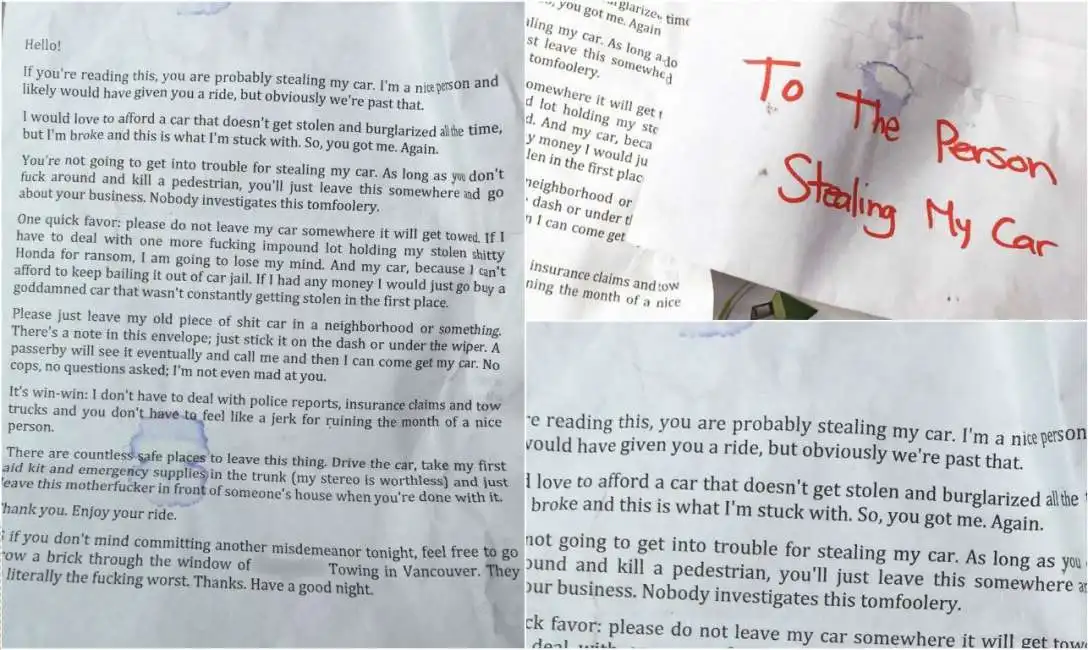 Hello!
If you're reading this, you are probably stealing my car. I'm a nice person and
likely would have given you a ride, but obviously we're past that.
I would love to afford a car that doesn't get stolen and burglarized all the time,
but I'm broke and this is what I'm stuck with. So, you got me. Again.
You're not going to get into trouble for stealing my car. As long as you don't
fuck around and kill a pedestrian, you'll just leave this somewhere and go
about your business. Nobody investigates this tomfoolery.
One quick favor: please do not leave my car somewhere it will get towed. If I
have to deal with one more fucking impound lot holding my stolen shitty
Honda for ransom, I am going to lose my mind. And my car, because I can't
afford to keep bailing it out of car jail. If I had any money I would just go buy a
goddamned car that wasn't constantly getting stolen in the first place.
Please just leave my old piece of shit car in a neighborhood or something.
There's a note in this envelope; just stick it on the dash or under the wiper. A
passerby will see it eventually and call me and then I can come get my car. No
cops, no questions asked; I'm not even mad at you.
It's win-win: I don't have to deal with police reports, insurance claims and tow
trucks and you don't have to feel like a jerk for ruining the month of a nice
person.
There are countless safe places to leave this thing. Drive the car, take my first
aid kit and emergency supplies in the trunk (my stereo is worthless) and just
eave this motherfucker in front of someone's house when you're done with it.
hank you. Enjoy your ride.
if you don't mind committing another misdemeanor tonight, feel free to go
row a brick through the window of Towing in Vancouver. They
literally the fucking worst. Thanks. Have a good night.
glarized time
you got me. Again
ling my car. As long a do
st leave this somewhe d
tomfoolery.
omewhere it will get t
d lot holding my sto
d. And my car, beca
y money I would ju
len in the first plac
neighborhood or
dash or under t
n I can come get
insurance claims and tow
ning the month of a nice
To The Person
Stealing My Car
e reading this, you are probably stealing my car. I'm a nice person
would have given you a ride, but obviously we're past that.
d love to afford a car that doesn't get stolen and burglarized all the
broke and this is what I'm stuck with. So, you got me. Again.
not going to get into trouble for stealing my car. As long as you
ound and kill a pedestrian, you'll just leave this somewhere a
our business. Nobody investigates this tomfoolery.
ck favor: please do not leave my car somewhere it will get tow
deal with